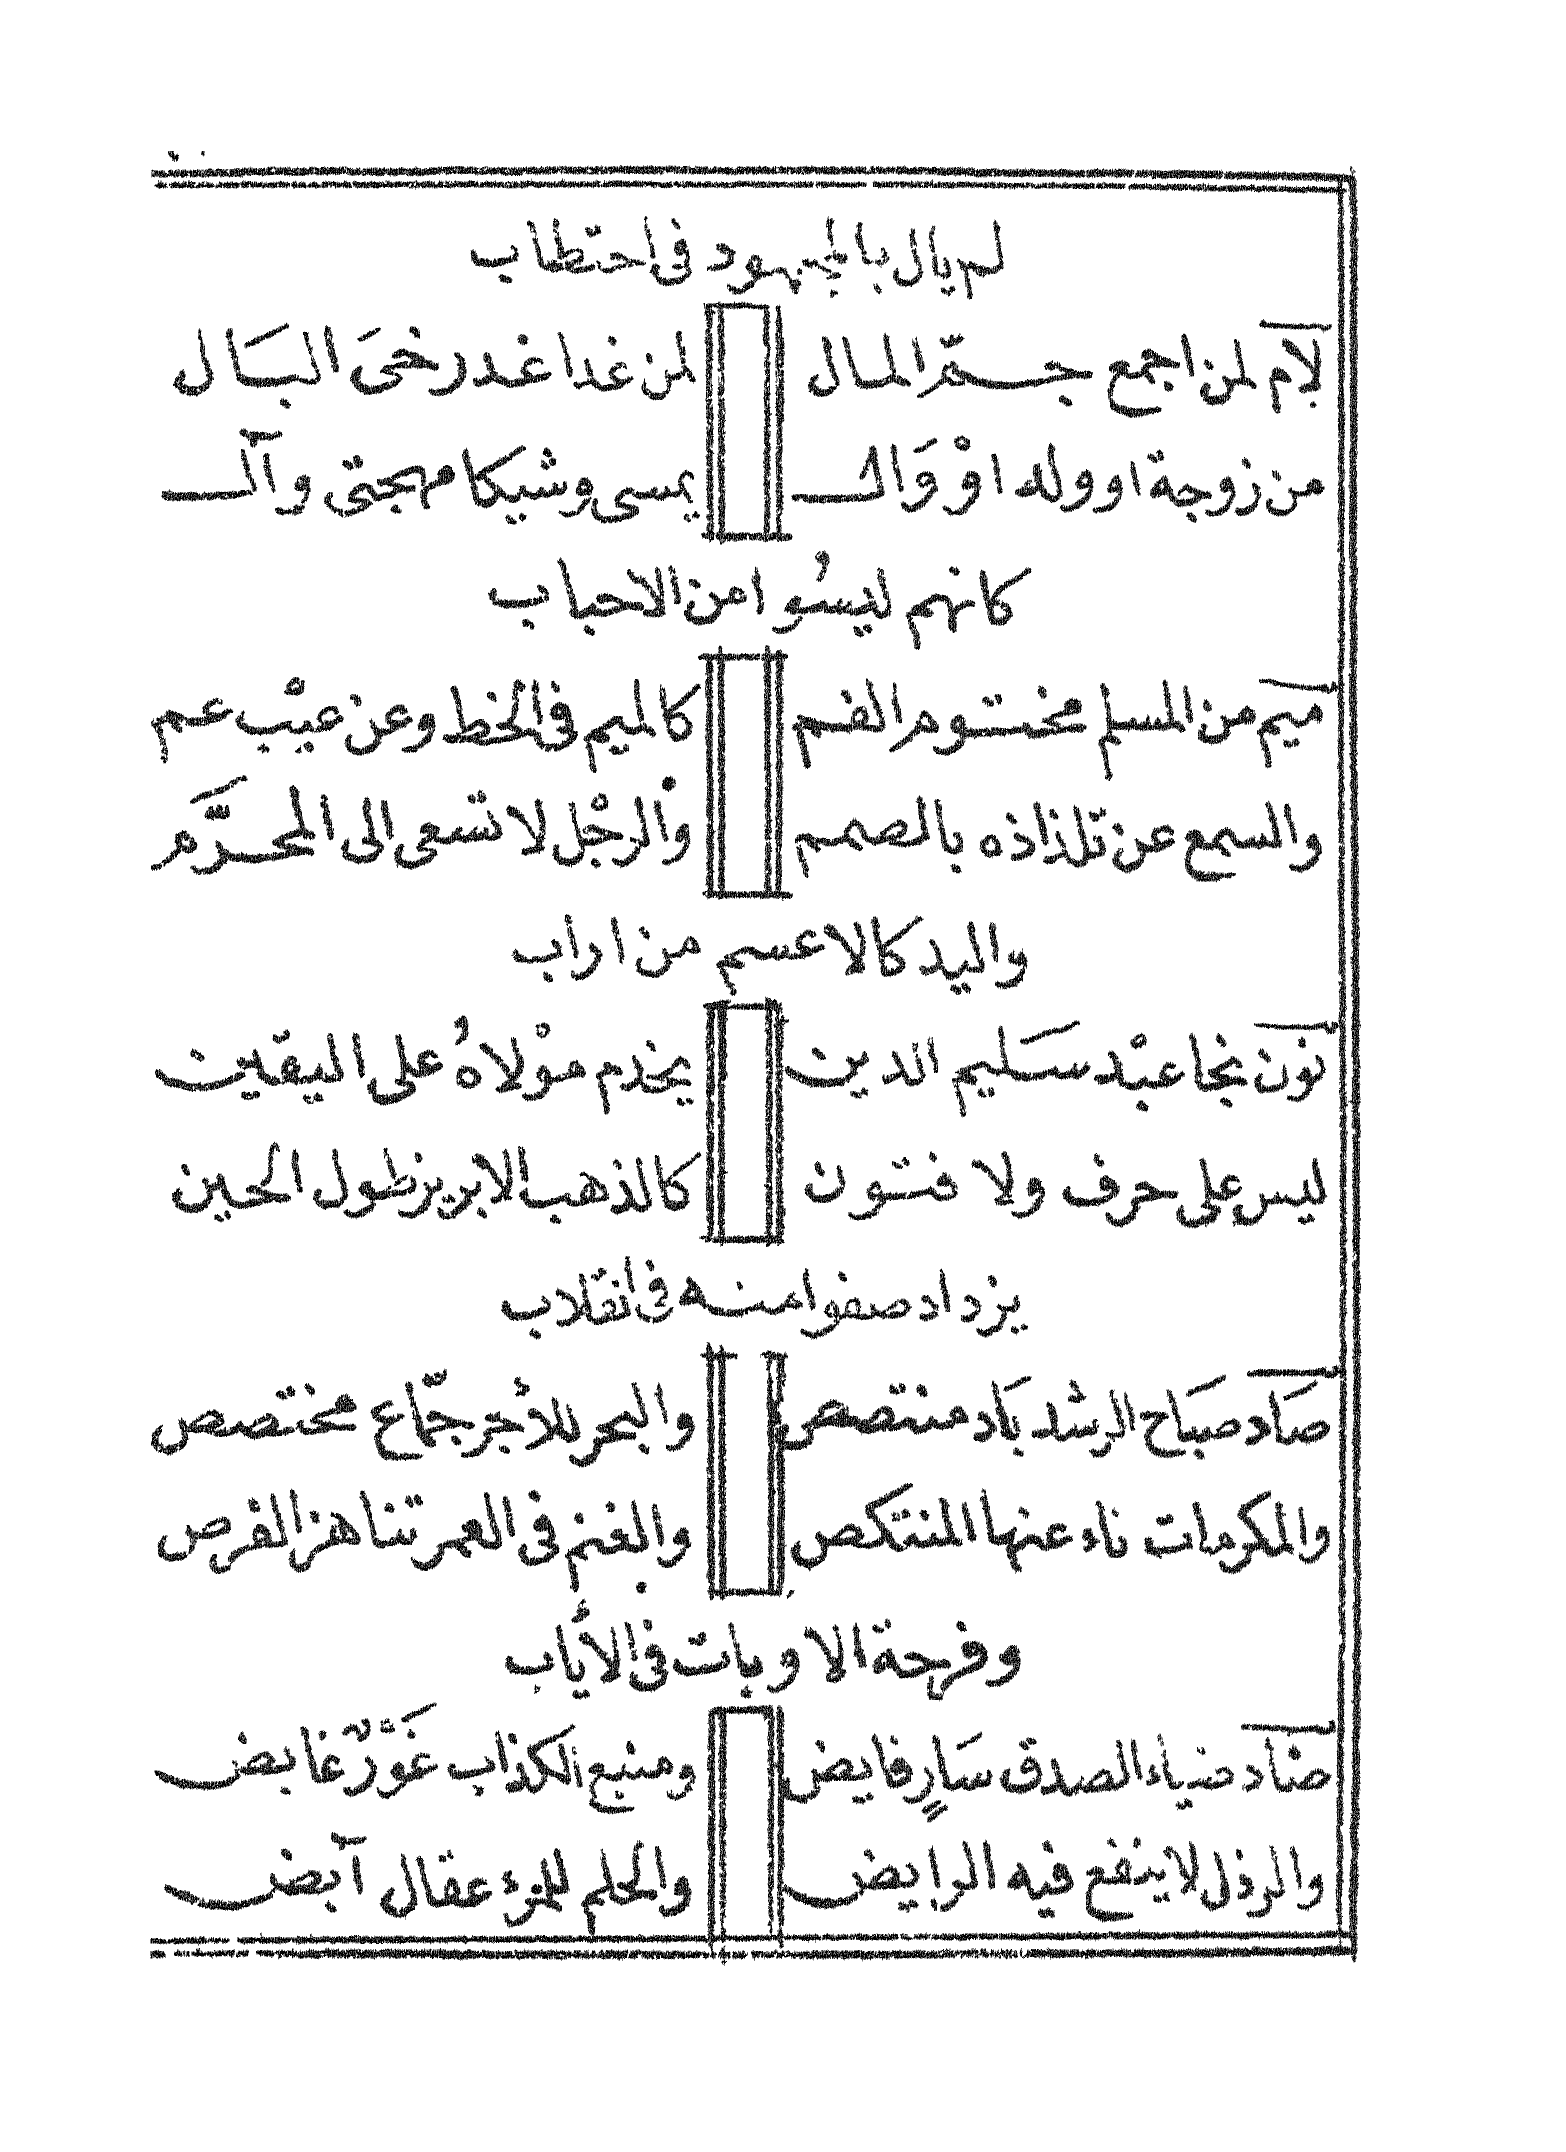 لم يال بالمجهود فى احتطاب
لآم لمن اجمع جمّ المال لمن غدا غد رخىَ البَال
من زوجة او وله اوْ وَال يمسى وشيكا مهجتى وآل
كانهم ليسُوا من الاحباب
ميم من المسلم مختوم الفم كالميم فى الخط وعن عيْب عم
والسمع عن تلذاذه بالصمم والرجْل لا تسعى الى المحرَّم
واليد كالاعسم من اراب
نون نجا عبْد سَليم الدين يخدم موْلاهُ على اليقين
ليس على حرف ولا فتون كالذهب الابريز طول الحين
يزداد صفوا منه فى انقلاب
صَاد صبَاح الرشد بَاد منتصص والبحر للأجر جمّاع مختصص
والمكرمات ناء عنها المنتكص والغنم فى العمر تناهز الفرص
وفرحة الاوبات فى الأياب
ضَاد ضياء الصدق سَارٍ فايض ومنبع الكذاب غَوْرٌ غايض
والرذل لا ينفع فيه الرايض والحلم للمرء عقال آبض